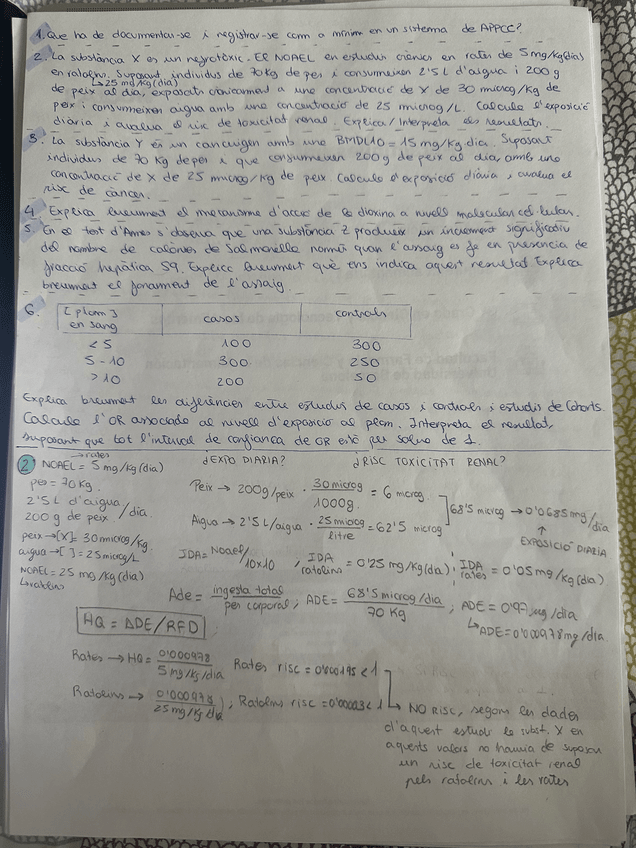 1. Que ha de documentar-se i registrar-se com a mínim en un sistema de APPCC?
2. La substància X és un nefrotòxic. El NOAEL en estudis crònics en rates de 5mg/kg(dia)
en ratolins. Suposant individus de 70kg de pes i consumeixen 2'5 L d'aigua i 200g
↳25 mg/kg(dia)
de peix al dia, exposats crònicament a una concentració de X de 30 microg/kg de
peix i consumeixen aigua amb una concentració de 25 microg/L. Calcula l'exposició
diària i avalua el risc de toxicitat renal. Explica/Interpreta els resultats.
3. La substància Y és un cancerigen amb una BMDL10 = 15 mg/kg dia. Suposant
individus de 70 Kg de pes i que consumeixen 200g de peix al dia, amb una
concentració de X de 25 microg/kg de peix. Calcula l'exposició diària i avalua el
risc de càncer.
4. Explica breument el mecanisme d'acció de la dioxina a nivell molecular cel·lular.
5. En el test d'Ames s'observa que una substància Z produeix un increment significatiu
del nombre de colònies de Salmonella només quan l'assaig es fa en presència de
fracció hepàtica S9. Explica breument què ens indica aquest resultat. Explica
breument el fonament de l'assaig.
6. [plom] en sang casos controls
< 5 100 300
5 - 10 300 250
> 10 200 50
Explica breument les diferències entre estudis de casos i controls i estudis de Cohorts.
Calcula l'OR associada al nivell d'exposició al plom. Interpreta el resultat,
suposant que tot l'interval de confiança de OR està per sobre de 1.
2 NOAEL = 5 mg/kg (dia)
↳rates
pes = 70Kg.
2'5 L d'aigua
200 g de peix /dia.
peix → [X] = 30 microg/kg.
aigua → [ ] = 25 microg/L
NOAEL = 25 mg/kg (dia)
↳ratolins
¿EXPO DIARIA? ¿RISC TOXICITAT RENAL?
Peix → 200g/peix · 30 microg / 1000g = 6 microg
Aigua → 2'5 L/aigua · 25 microg / litre = 62'5 microg
68'5 microg → 0'0685 mg/dia
↑
EXPOSICIÓ DIARIA
IDA = Noael/10x10 ; IDA ratolins = 0'25 mg/kg(dia) ; IDA rates = 0'05 mg/kg(dia)
Ade = ingesta total / pes corporal ; ADE = 68'5 microg/dia / 70 Kg ; ADE = 0'97 µg/dia
↳ ADE = 0'000978 mg/dia.
HQ = ADE/RFD
Rates → HQ = 0'000978 / 5 mg/kg/dia Rates risc = 0'000195 < 1
Ratolins → 0'000978 / 25 mg/kg/dia ; Ratolins risc = 0'00003 < 1
↳ NO RISC, segons les dades
d'aquest estudi la subst. X en
aquests valors no hauria de suposar
un risc de toxicitat renal
pels ratolins i les rates